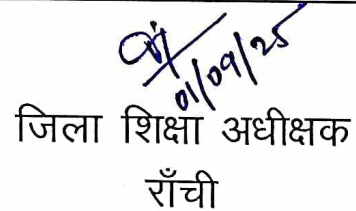 01/09/25
जिला शिक्षा अधीक्षक
राँची